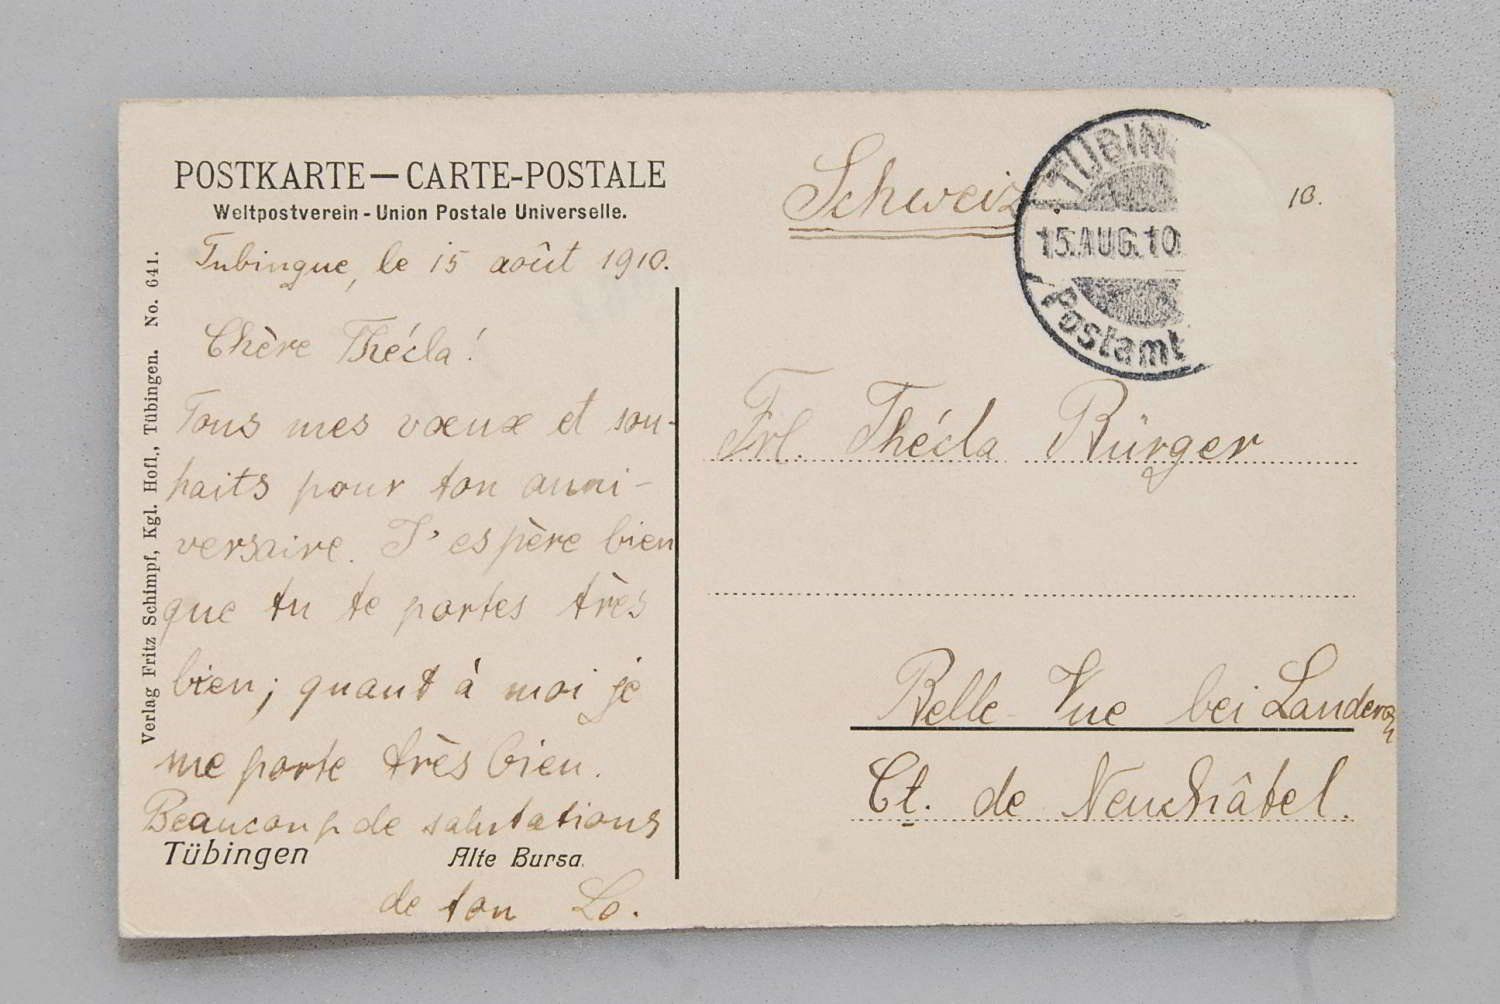 POSTKARTE — CARTE-POSTALE
Weltpostverein - Union Postale Universelle.
Tubingue, le 15 août 1910.
Chère Thécla!
Tous mes vœux et sou-
haits pour ton anni-
versaire. J'espère bien
que tu te portes très
bien; quant à moi je
me porte très bien.
Beaucoup de salutations
Tübingen Alte Bursa.
de ton Lo.
Verlag Fritz Schimpf, Kgl. Hofl., Tübingen. No. 641.
Schweiz.
TÜBIN
15.AUG.10
Postamt
10.
Frl. Thécla Bürger
Belle-Vue bei Landeron
Ct. de Neuchâtel.